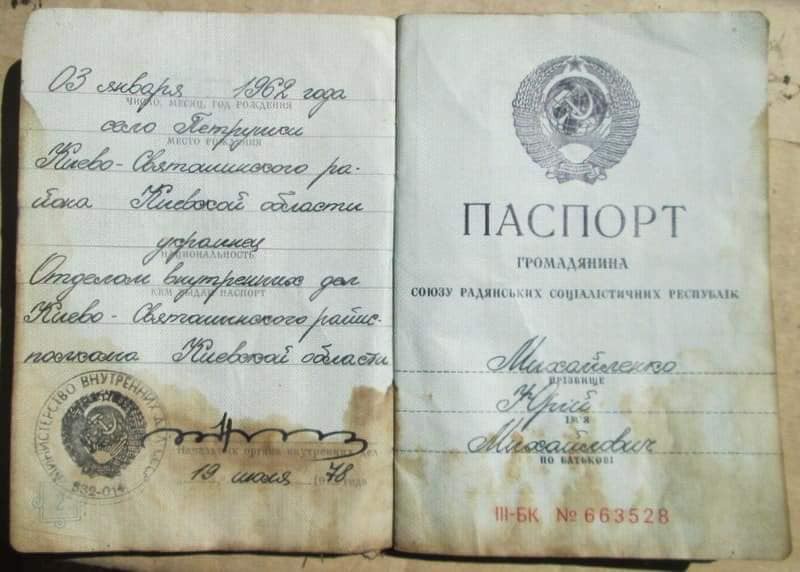 03 января 1962 года
ЧИСЛО, МЕСЯЦ, ГОД РОЖДЕНИЯ
село Петрушки
МЕСТО РОЖДЕНИЯ
Киево-Святошинского ра-
йона Киевской области
украинец
НАЦИОНАЛЬНОСТЬ
Отделом внутренних дел
КЕМ ВЫДАН ПАСПОРТ
Киево-Святошинского райис-
полкома Киевской области
МИНИСТЕРСТВО ВНУТРЕННИХ ДЕЛ СССР
532-014
Начальник органа внутренних дел
19 июля 1978 года
ПАСПОРТ
ГРОМАДЯНИНА
СОЮЗУ РАДЯНСЬКИХ СОЦІАЛІСТИЧНИХ РЕСПУБЛІК
Михайленко
ПРІЗВИЩЕ
Юрій
ІМ'Я
Михайлович
ПО БАТЬКОВІ
III-БК № 663528